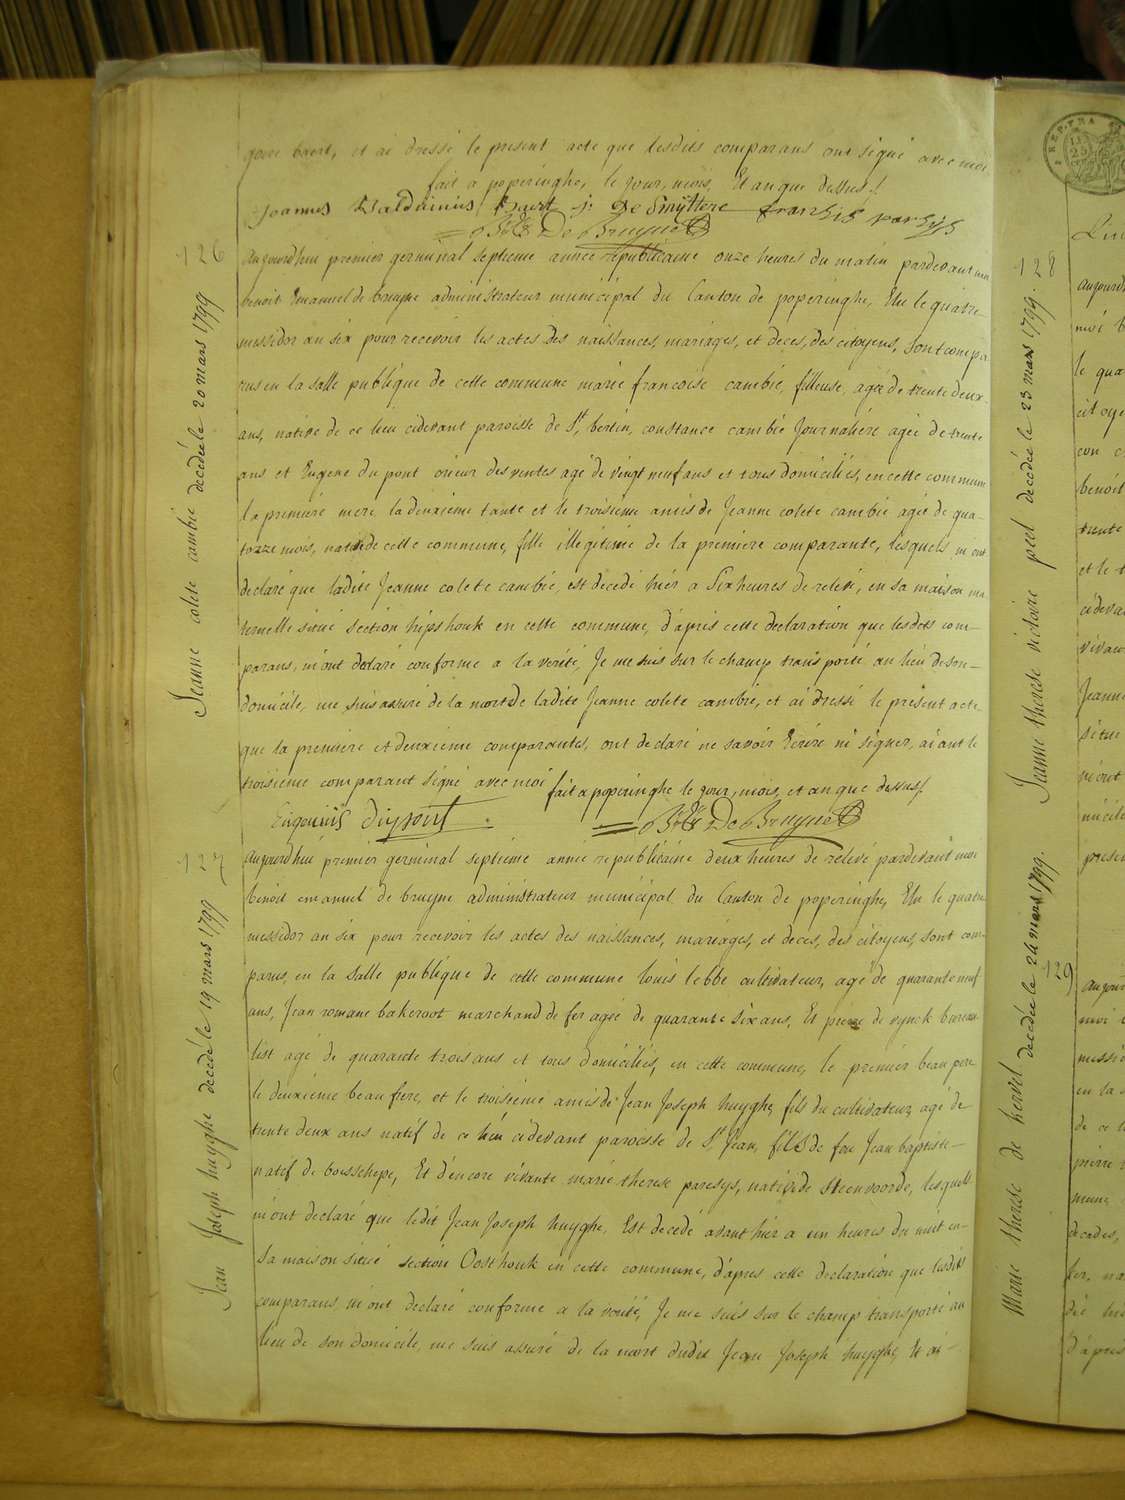 goire baert, et ai dressé le present acte que lesdits comparans ont signé avec moi
fait a poperinghe, le jour, mois, Et an que dessus./.
Joannes Balduinus Baert j: De Smÿttere fransis parsijs
B: E: De Bruyne
126
Jeanne colete cambié decedée le 20 mars 1799
Aujourdhui premier germinal septieme année republicaine onze heures du matin pardevant moi
benoit Emanuel de bruyne administrateur municipal du Canton de poperinghe, Elu le quatre
messidor an six pour recevoir les actes des naissances, mariages, et deces, des citoyens, sont compa
rus en la salle publique de cette commune marie francoise cambié, fileuse, agée de trente deux
ans, native de ce lieu cidevant paroisse de St. bertin, constance cambié Journaliere agée de trente
ans et Eugene du pont crieur des ventes agé de vingt neuf ans et tous domiciliés, en cette commune
la premiere mere la deuxieme tante et le troisieme amis de Jeanne colete cambié agée de qua-
torze mois, native de cette commune, fille illégitime de la premiere comparante, lesquels m'ont
declaré que ladite Jeanne colete cambié, est decedé hier a Six heures de relevé, en sa maison ma
ternelle situé section hipshouk en cette commune, d'apres cette declaration que lesdits com-
parans, m'ont declaré conforme a la verité, Je me suis sur le champ transporté au lieu de son-
domicile, me suis assuré de la mort de ladite Jeanne colete cambié, et ai dressé le present acte
que la premiere et deuxieme comparantes, ont declaré ne savoir Ecrire ni signer, aiant le
troisieme comparant signé avec moi fait a poperinghe le jour, mois, et an que dessus/.
Eugeniis dupont B: E: De Bruyne
127
Jean Joseph huyghe decedé le 19 mars 1799
Aujourdhui premier germinal septieme année republicaine deux heures de relevé pardevant moi
benoit emanuel de bruyne administrateur municipal du Canton de poperinghe, Elu le quatre
messidor an six pour recevoir les actes des naissances, mariages, et deces, des citoyens, sont com-
parus, en la salle publique de cette commune louis lebbe cultivateur, agé de quarante neuf
ans, Jean romane bakeroot marchand de fer agée de quarante six ans, Et pierre de vynck bureau
list agé de quarante trois ans et tous domiciliés, en cette commune, le premier beau pere
le deuxieme beau frere, et le troisieme amis de Jean Joseph huyghe, fils du cultivateur, agé de
trente deux ans natif de ce lieu cidevant paroisse de St. Jean, fils de feu Jean baptiste-
natif de boesschepe, Et d'encore vivante marie therese paresys, native de steenvoorde, lesquels
m'ont declaré que ledit Jean Joseph huyghe, Est decedé avant hier a un heures du nuit en-
sa maison situé section Oosthouk en cette commune, d'apres cette declaration que lesdits
comparans, m'ont declaré conforme a la verité, Je me suis sur le champ transporté au
lieu de son domicile, me suis assuré de la mort dudit Jean Joseph huyghe, Et ai-
128
Jeanne therese victoire peel decedée le 23 mars 1799.
aujourd
le qua
benoit
trente
et le t
cideva
vivan
Jeanne
situe
m'ont
presen
129
Marie therese de hervel decedée le 24 mars 1799.
aujour
moi
messid
en la
de ce l
pierre
decades,
d'apres